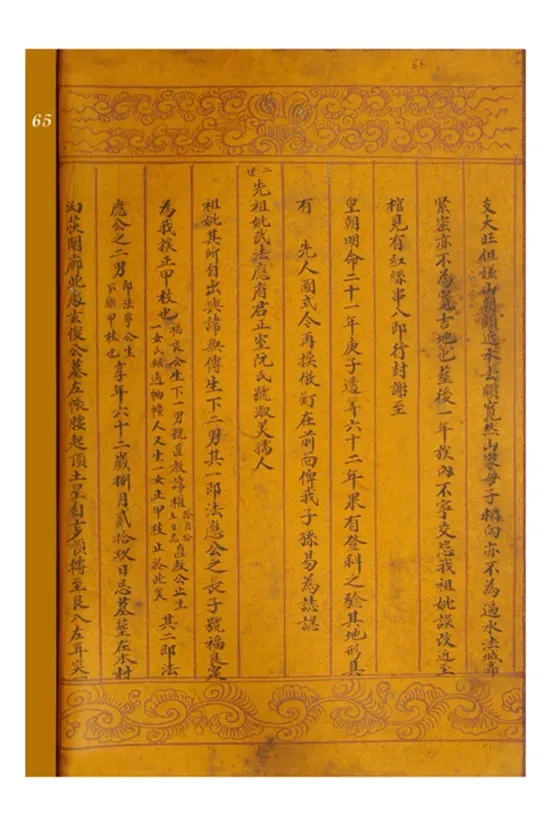 66
65
支大旺但嫌山朝頗近水去頗寬然山家母子相向亦不為過水法城郭
緊密亦不為寬吉地也葬後一年族內不寧交怨我祖妣誤改近至
棺見有紅絲串八即行封謝至
皇朝明命二十一年庚子遺等六十二年果有登科之驗其地形具
有　先人圖式今再摸倣釘在前面俾我子孫易為誌認
二世
先祖妣武法應府君正室阮氏號淑美孺人
祖妣其所自出與諱無傳生下二男其一即法應公之長子號福良是
為我族正甲枝也
福良公生下一男號直毅諱權 拾月拾五日忌 直毅公止生
一女氏 遺物 人又生一女正甲枝止於此矣
其二即法
應公之二男 即法寧公生下 甲枝也 享年六十二歲捌月貳拾玖日忌墓塟在本村
開廊此處玄俊公墓左 腰起頂土星自 順轉至艮入左耳